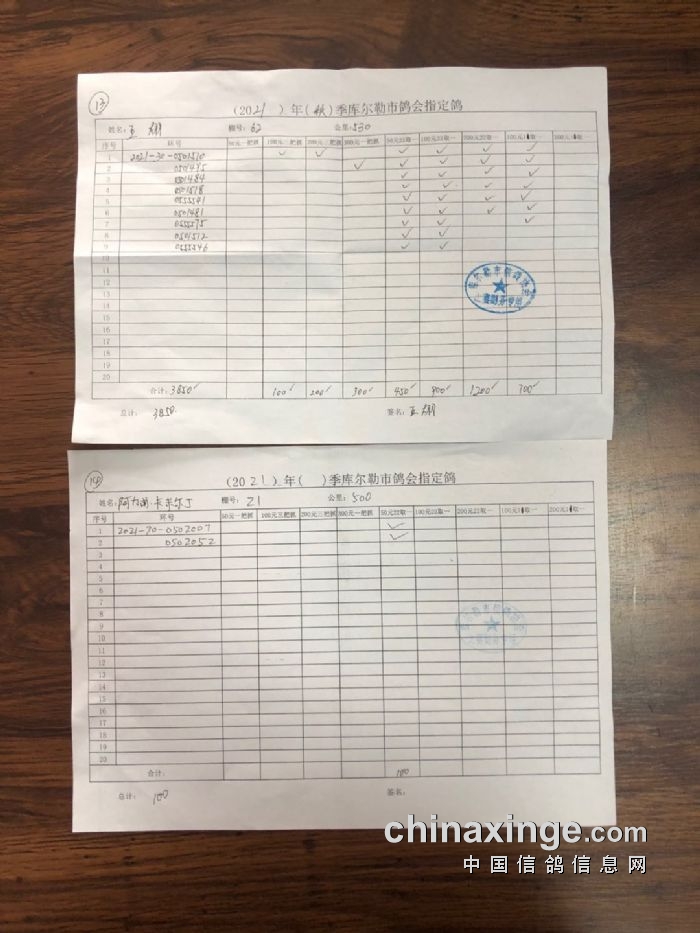 13
(2021)年(秋)季库尔勒市鸽会指定鸽
姓名: 棚号: 62 公里: 530
序号 环号 50元一把抓 100元三把抓 200元三把抓 300元一把抓 50元22取一 100元22取一 200元22取一
1 2021-30-0501510 ✓ ✓ ✓ ✓ ✓ ✓
2 0501495 ✓ ✓ ✓ ✓ ✓
3 0501484 ✓ ✓ ✓ ✓
4 0501518 ✓ ✓ ✓ ✓
5 0555541 ✓ ✓ ✓ ✓
6 0501481 ✓ ✓ ✓ ✓
7 0555575 ✓ ✓ ✓
8 0501512 ✓ ✓
9 0555546 ✓ ✓
10
11
12
13
14
15
16
17
18
19
20
合计: 3850 100 200 300 450 1200 700
总计: 3850 签名:
(2021)年( )季库尔勒市鸽会指定鸽
姓名: 棚号: 21 公里: 500
序号 环号 50元一把抓 100元三把抓 200元三把抓 300元一把抓 50元22取一 100元22取一 200元22取一
1 2021-30-0502007 ✓
2 0502052 ✓
3
4
5
6
7
8
9
10
11
12
13
14
15
16
17
18
19
20
合计: 100
总计: 100 签名:
chinaxinge.com
中国信鸽信息网